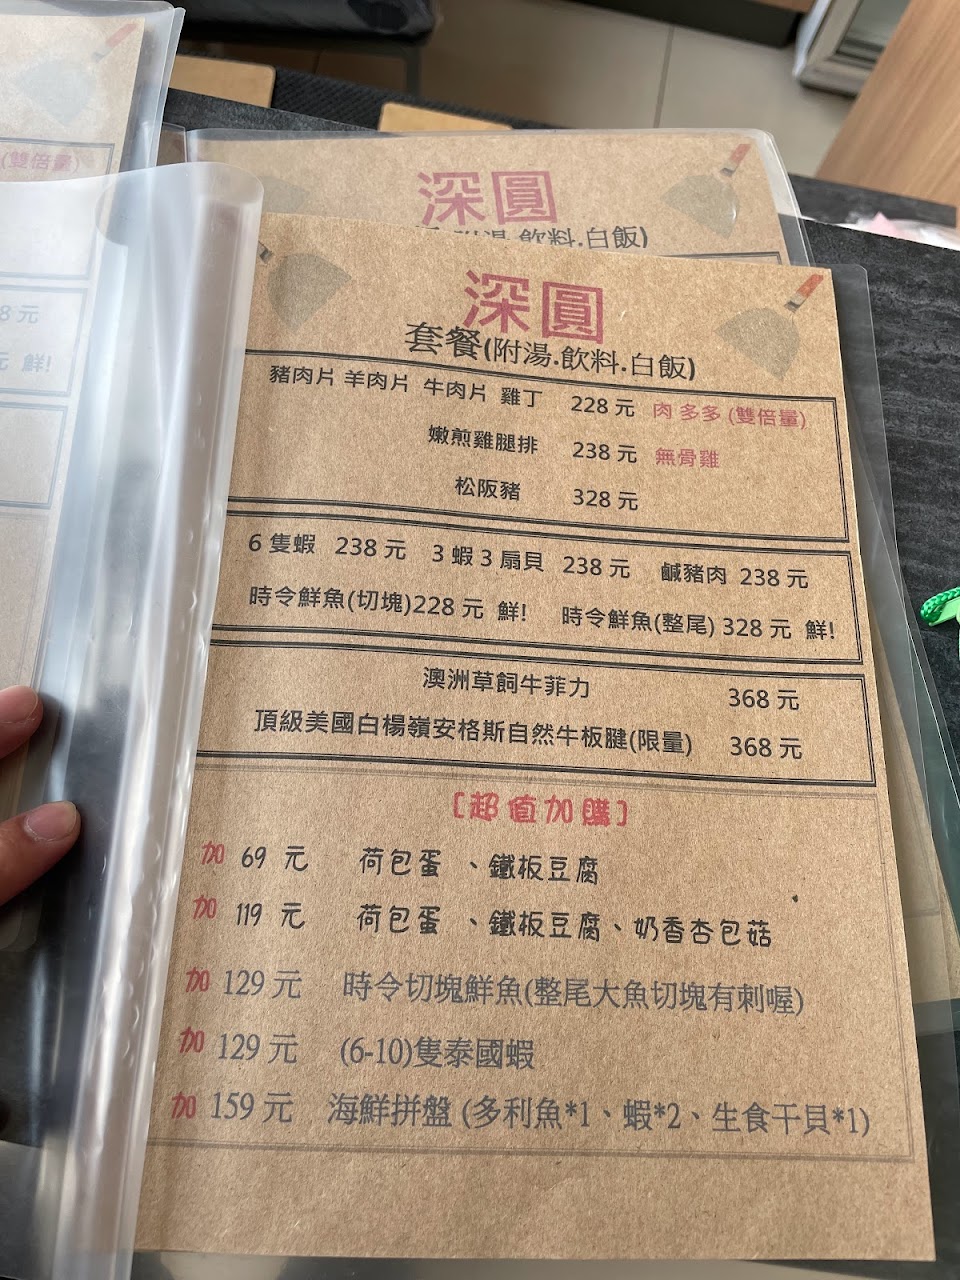 (雙倍量)
8 元
元 鮮!
深圓
附湯.飲料.白飯)
深圓
套餐(附湯.飲料.白飯)
豬肉片 羊肉片 牛肉片 雞丁 228 元 肉 多多 (雙倍量)
嫩煎雞腿排 238 元 無骨雞
松阪豬 328 元
6 隻蝦 238 元 3 蝦 3 扇貝 238 元 鹹豬肉 238 元
時令鮮魚(切塊)228 元 鮮! 時令鮮魚(整尾) 328 元 鮮!
澳洲草飼牛菲力 368 元
頂級美國白楊嶺安格斯自然牛板腱(限量) 368 元
〔超值加購〕
加 69 元 荷包蛋 、鐵板豆腐
加 119 元 荷包蛋 、鐵板豆腐、奶香杏包菇
加 129 元 時令切塊鮮魚(整尾大魚切塊有刺喔)
加 129 元 (6-10)隻泰國蝦
加 159 元 海鮮拼盤 (多利魚*1、蝦*2、生食干貝*1)